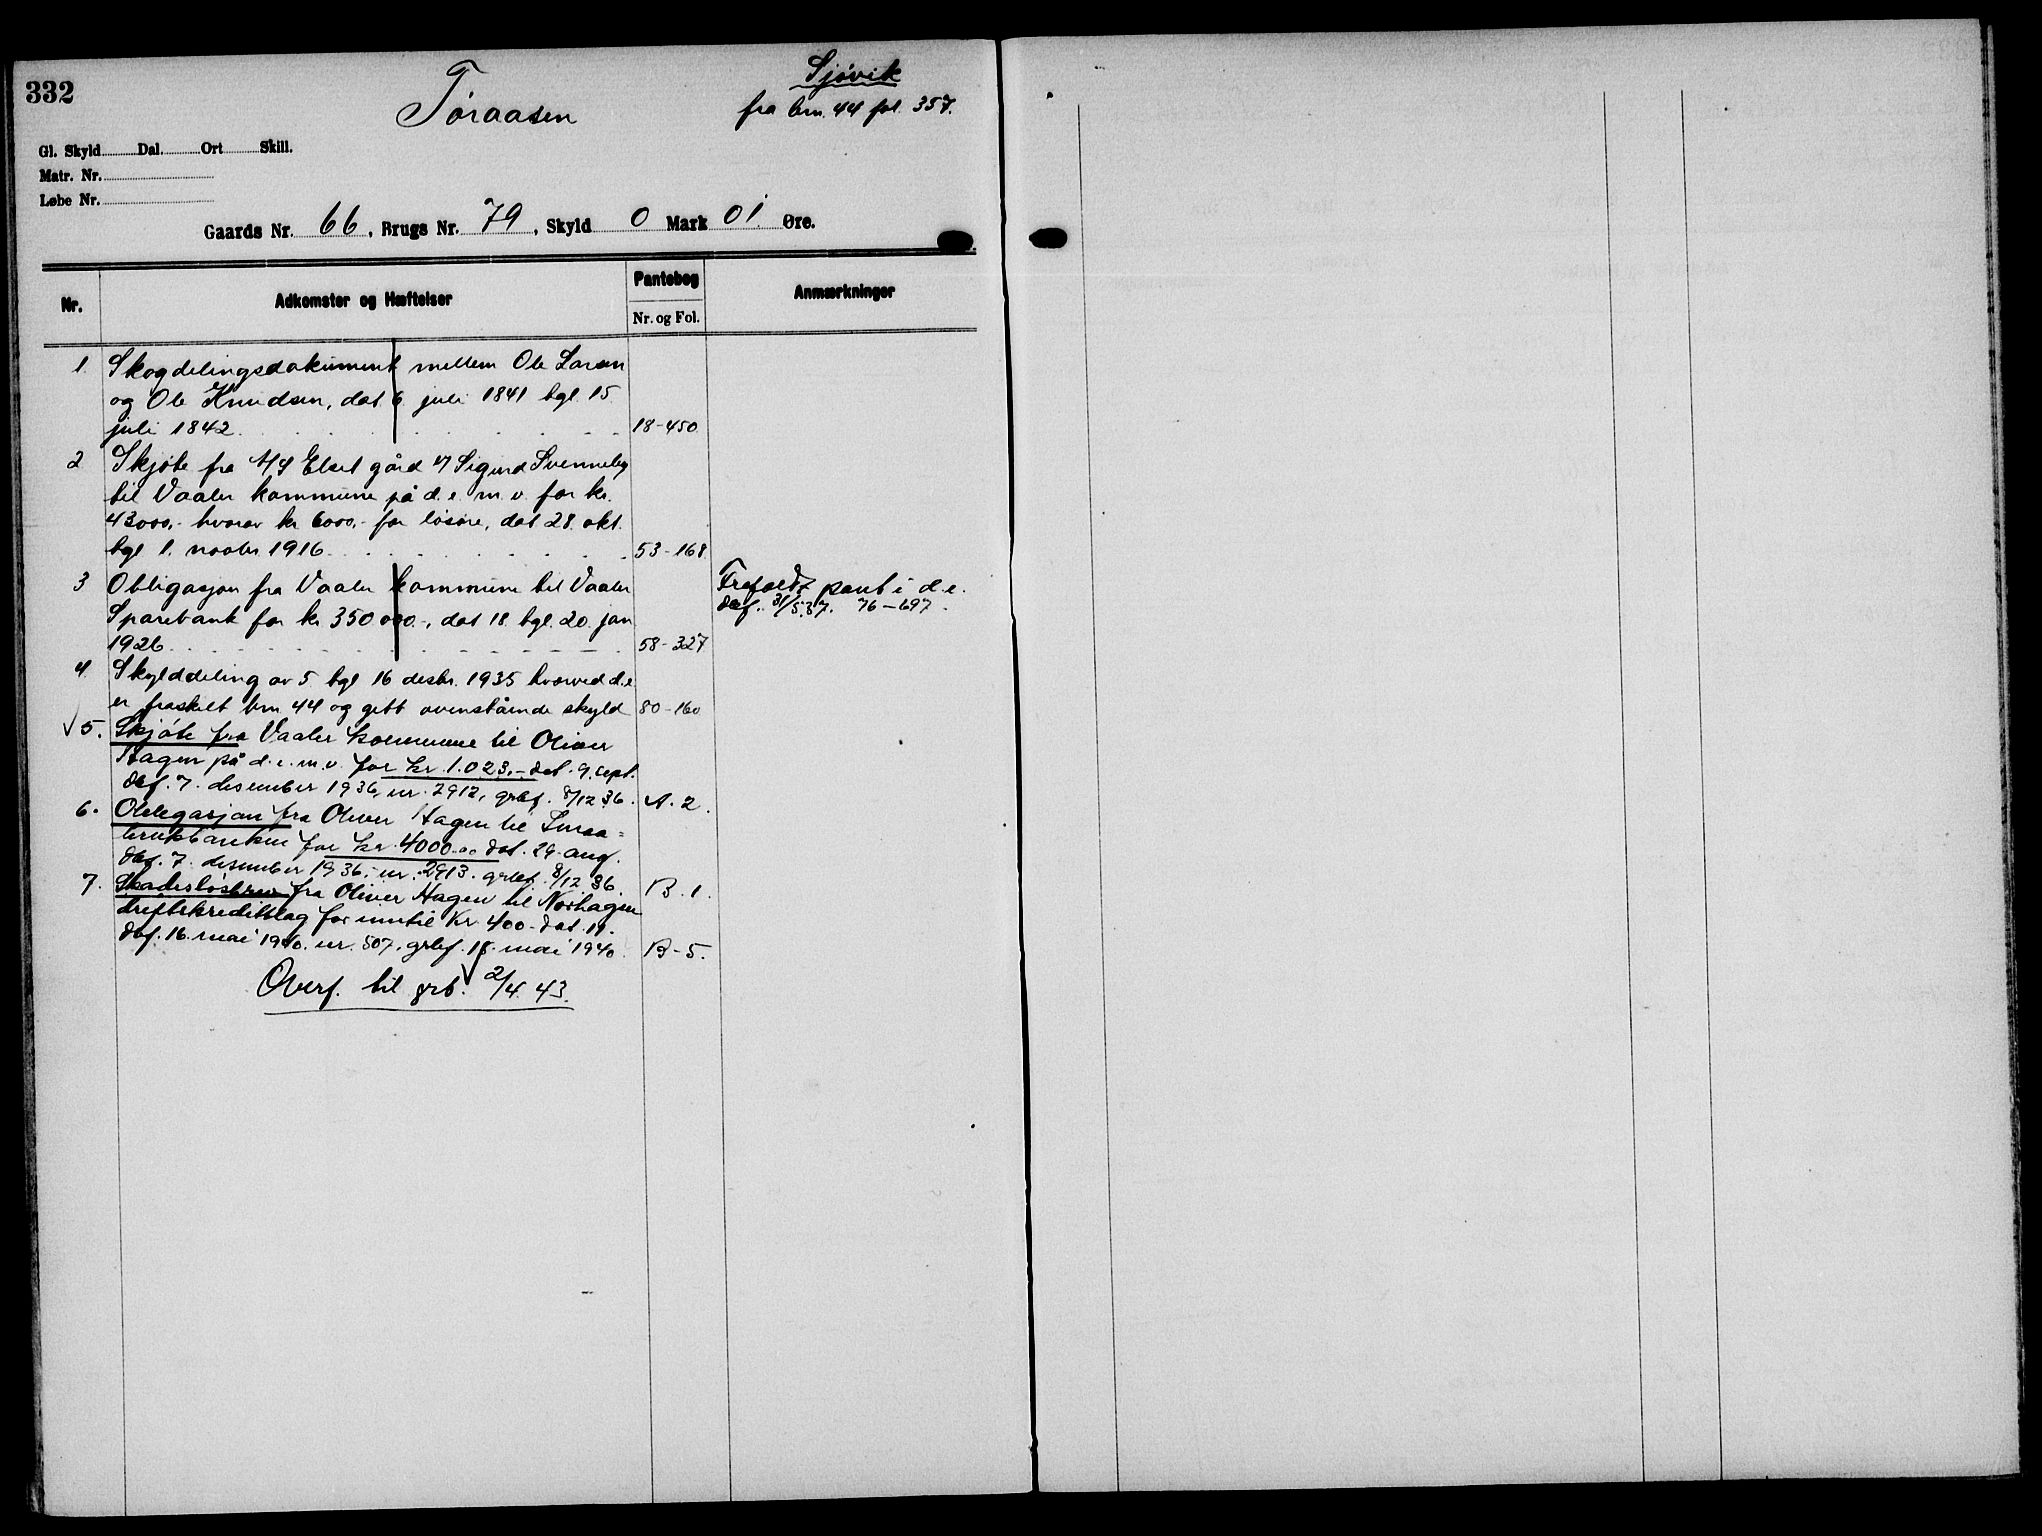 332
Töraasen
Sjövik
fra brn. 44 fol. 357.
Gl. Skyld Dal. Ort Skill.
Matr. Nr.
Løbe Nr.
Gaards Nr. 66, Brugs Nr. 79, Skyld 0 Mark 01. Øre.
Nr.
Adkomster og Hæftelser
Pantebog
Nr. og Fol.
Anmærkninger
1. Skogdelingsdokument mellem Ole Larsen
og Ole Knudsen, dat. 6. juli 1841 tgl. 15.
juli 1842. 18-450
2 Skjöte fra A/S Elset gård v/ Sigurd Svenneby
til Vaaler kommune på d.e. m.v. for kr.
43000,- hvorav kr 6000,- for lösöre, dat 28. okt.
tgl 1. novbr 1916. 53-168
3 Obligasjon fra Vaaler kommune til Vaaler
Sparebank for kr 350 000.-, dat 18. tgl. 20. jan
1926. 58-327
Frafaldt pant i d.e.
dbf. 31/5.37. 76-697.
4. Skylddeling av 5 tgl 16 desbr. 1935 hvorved d.e
er fraskilt brn 44 og gitt ovenstående skyld 80-160
5. Skjöte fra Vaaler kommune til Oliver
Hagen på d.e.m.v. for kr. 1.023.- dat. 9. sept.
dbf. 7. desember 1936, nr. 2912, grbf. 8/12 36. A. 2.
6. Obligasjon fra Oliver Hagen til Smaa=
brukbanken for kr. 4000.00 dat. 29. aug.
dbf. 7. desember 1936, nr. 2913. grbf. 8/12 36. B. 1.
7. Skadeslösbrev fra Oliver Hagen til Norhagen
driftskredittlag for inntil Kr. 400.- dat. 19.
dbf. 16. mai 1940. nr. 507. grbf. 18. mai 1940. B-5.
Overf. til grb. 2/4 43.